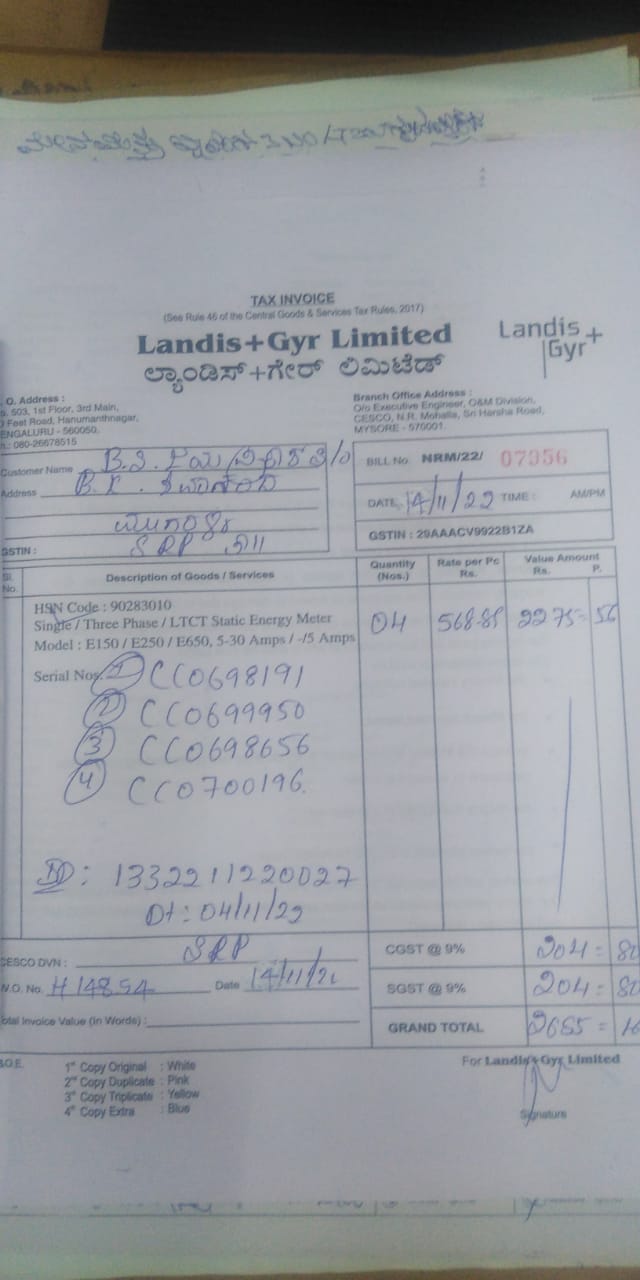 TAX INVOICE
(See Rule 46 of the Central Goods & Services Tax Rules, 2017)
Landis+Gyr Limited
ಲ್ಯಾಂಡಿಸ್+ಗೇರ್ ಲಿಮಿಟೆಡ್
Landis+
Gyr
O. Address :
503, 1st Floor, 3rd Main,
Feet Road, Hanumanthnagar,
ENGALURU - 560050.
080-26678515
Branch Office Address :
O/o Executive Engineer, O&M Division,
CESCO, N.R. Mohalla, Sri Harsha Road,
MYSORE - 570001.
Customer Name B.S.
Address B.K.
SRP
GSTIN :
BILL No. NRM/22/ 07956
DATE 14/11/22 TIME : AM/PM
GSTIN : 29AAACV9922B1ZA
Sl. No. Description of Goods / Services Quantity (Nos.) Rate per Pc Rs. Value Amount Rs. P.
HSN Code : 90283010
Single / Three Phase / LTCT Static Energy Meter 04 568-89 2275=56
Model : E150 / E250 / E650, 5-30 Amps / -/5 Amps
Serial Nos. 1 CC0698191
2 CC0699950
3 CC0698656
4 CC0700196
DD: 1332211220027
Dt: 04/11/22
CESCO DVN : SRP
CGST @ 9% 204=80
W.O. No. H 14854 Date 14/11/22
SGST @ 9% 204=80
Total Invoice Value (In Words) :
GRAND TOTAL 2685=16
&O.E.
1st Copy Original : White
2nd Copy Duplicate : Pink
3rd Copy Triplicate : Yellow
4th Copy Extra : Blue
For Landis+Gyr Limited
Signature